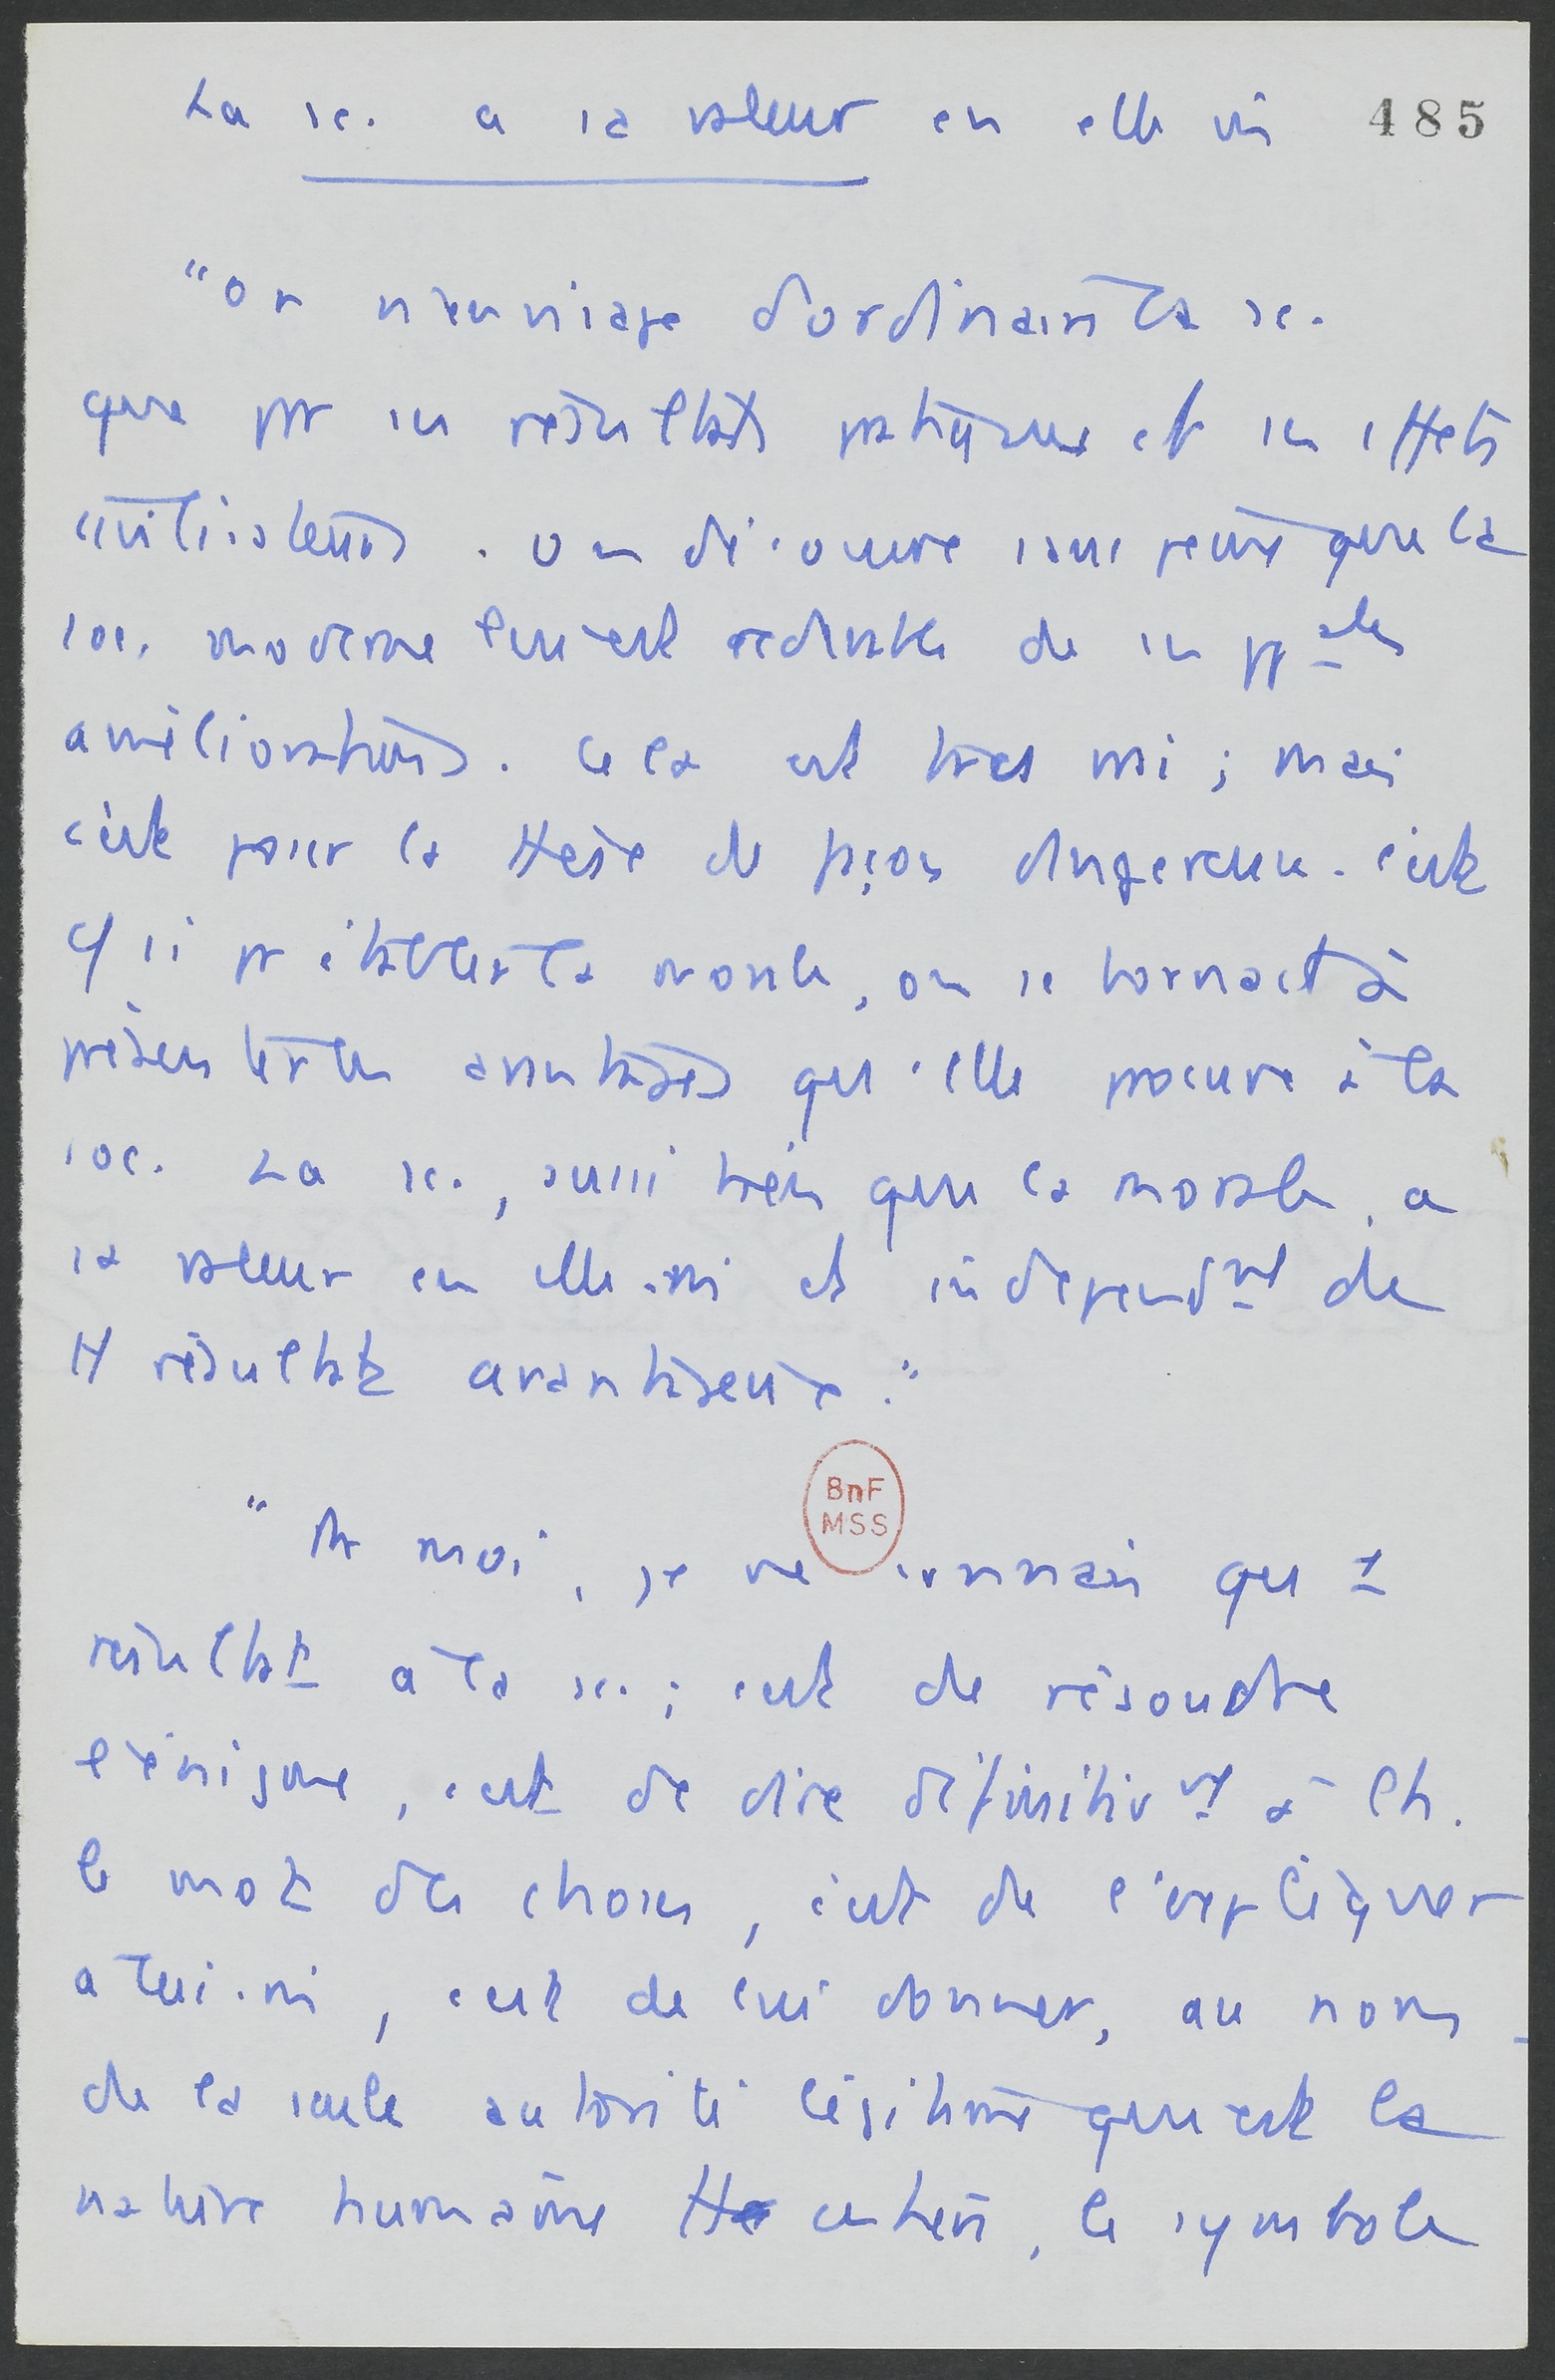 La sc. a sa valeur en elle mê 485
"On n'envisage d'ordinaire la sc.
que pr ses résultats pratiques et ses effets
civilisateurs. On découvre sans peine que la
soc. moderne lui est redevable de ses ppales
améliorations. Cela est très vrai ; mais
c'est poser la thèse de façon dangereuse. C'est
c/ si pr établir la morale, on se bornait à
présenter les avantages qu'elle procure à la
soc. La sc., aussi bien que la morale, a
sa valeur en elle-mê et indépendmt de
tt résultat avantageux."
BnF
MSS
"Pr moi, je ne connais qu 1
résultat à la sc. ; c'est de résoudre
l'énigme, c'est de dire définitivmt à l'h.
le mot des choses, c'est de l'expliquer
à lui-mê, c'est de lui donner, au nom
de la seule autorité légitime qui est la
nature humaine tte entière, le symbole